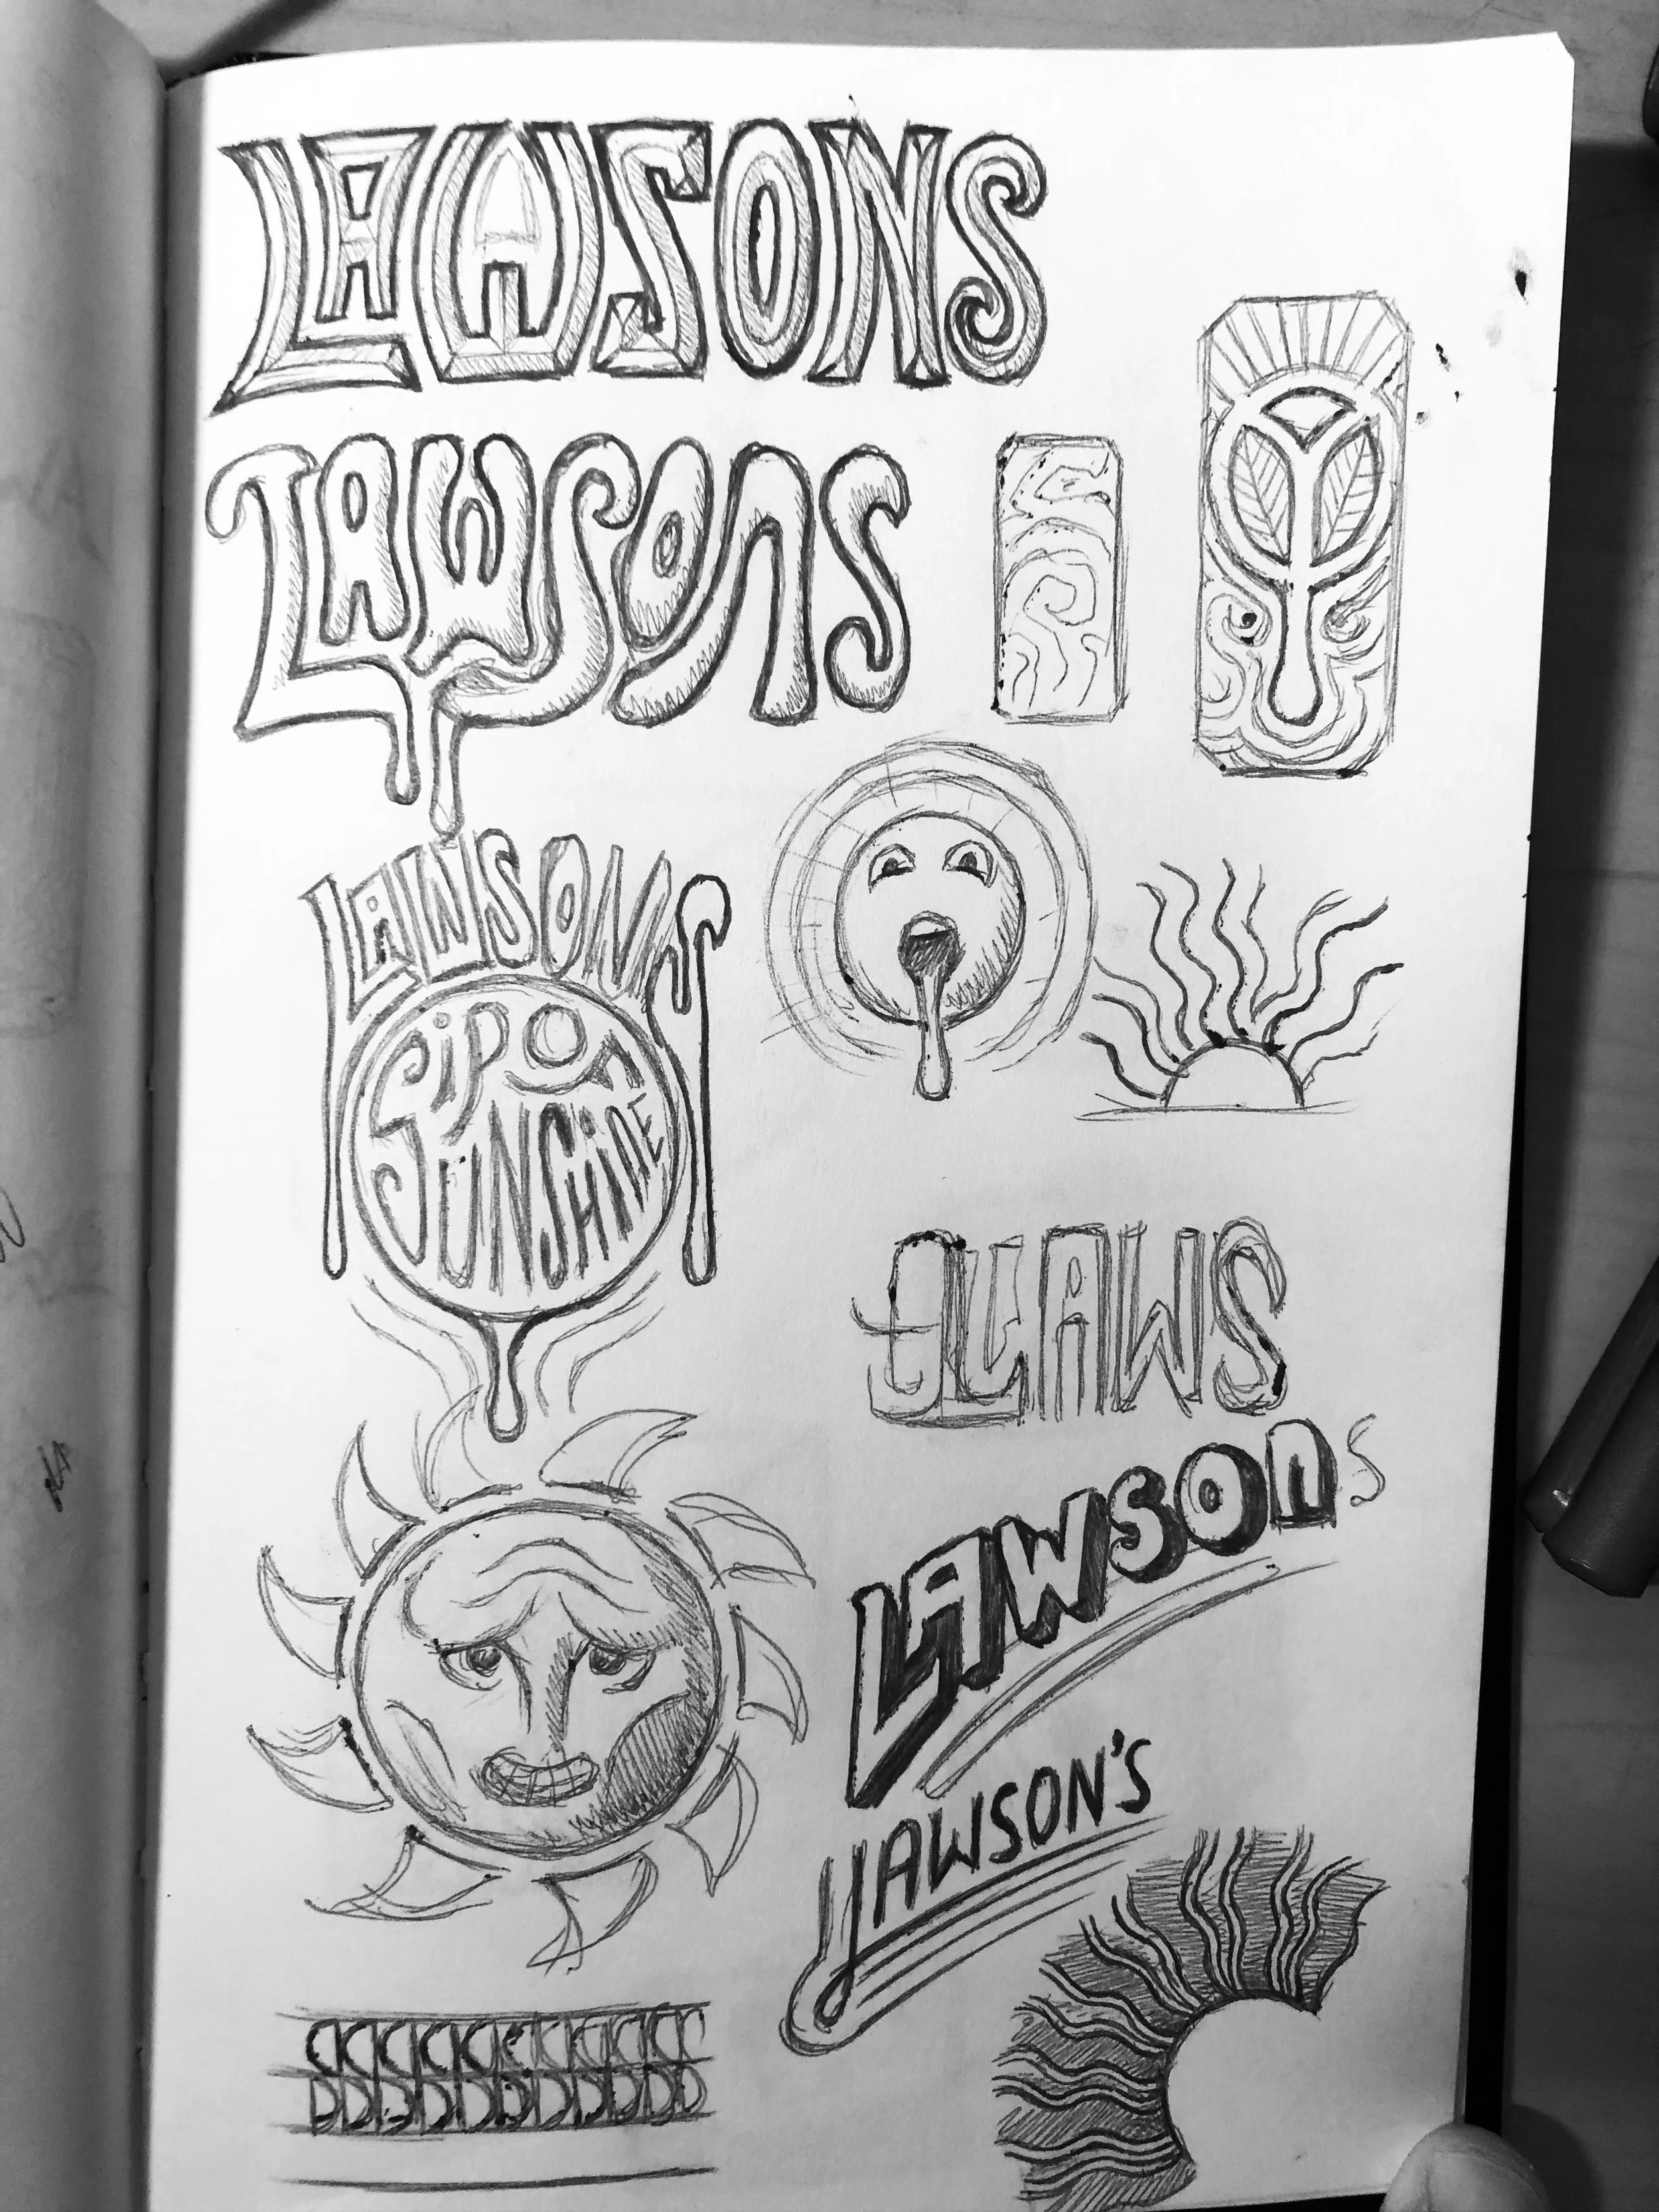 LAWSONS
LAWSONS
LAWSONS
Sip on
SUNSHINE
LAWS
LAWSONS
LAWSON'S